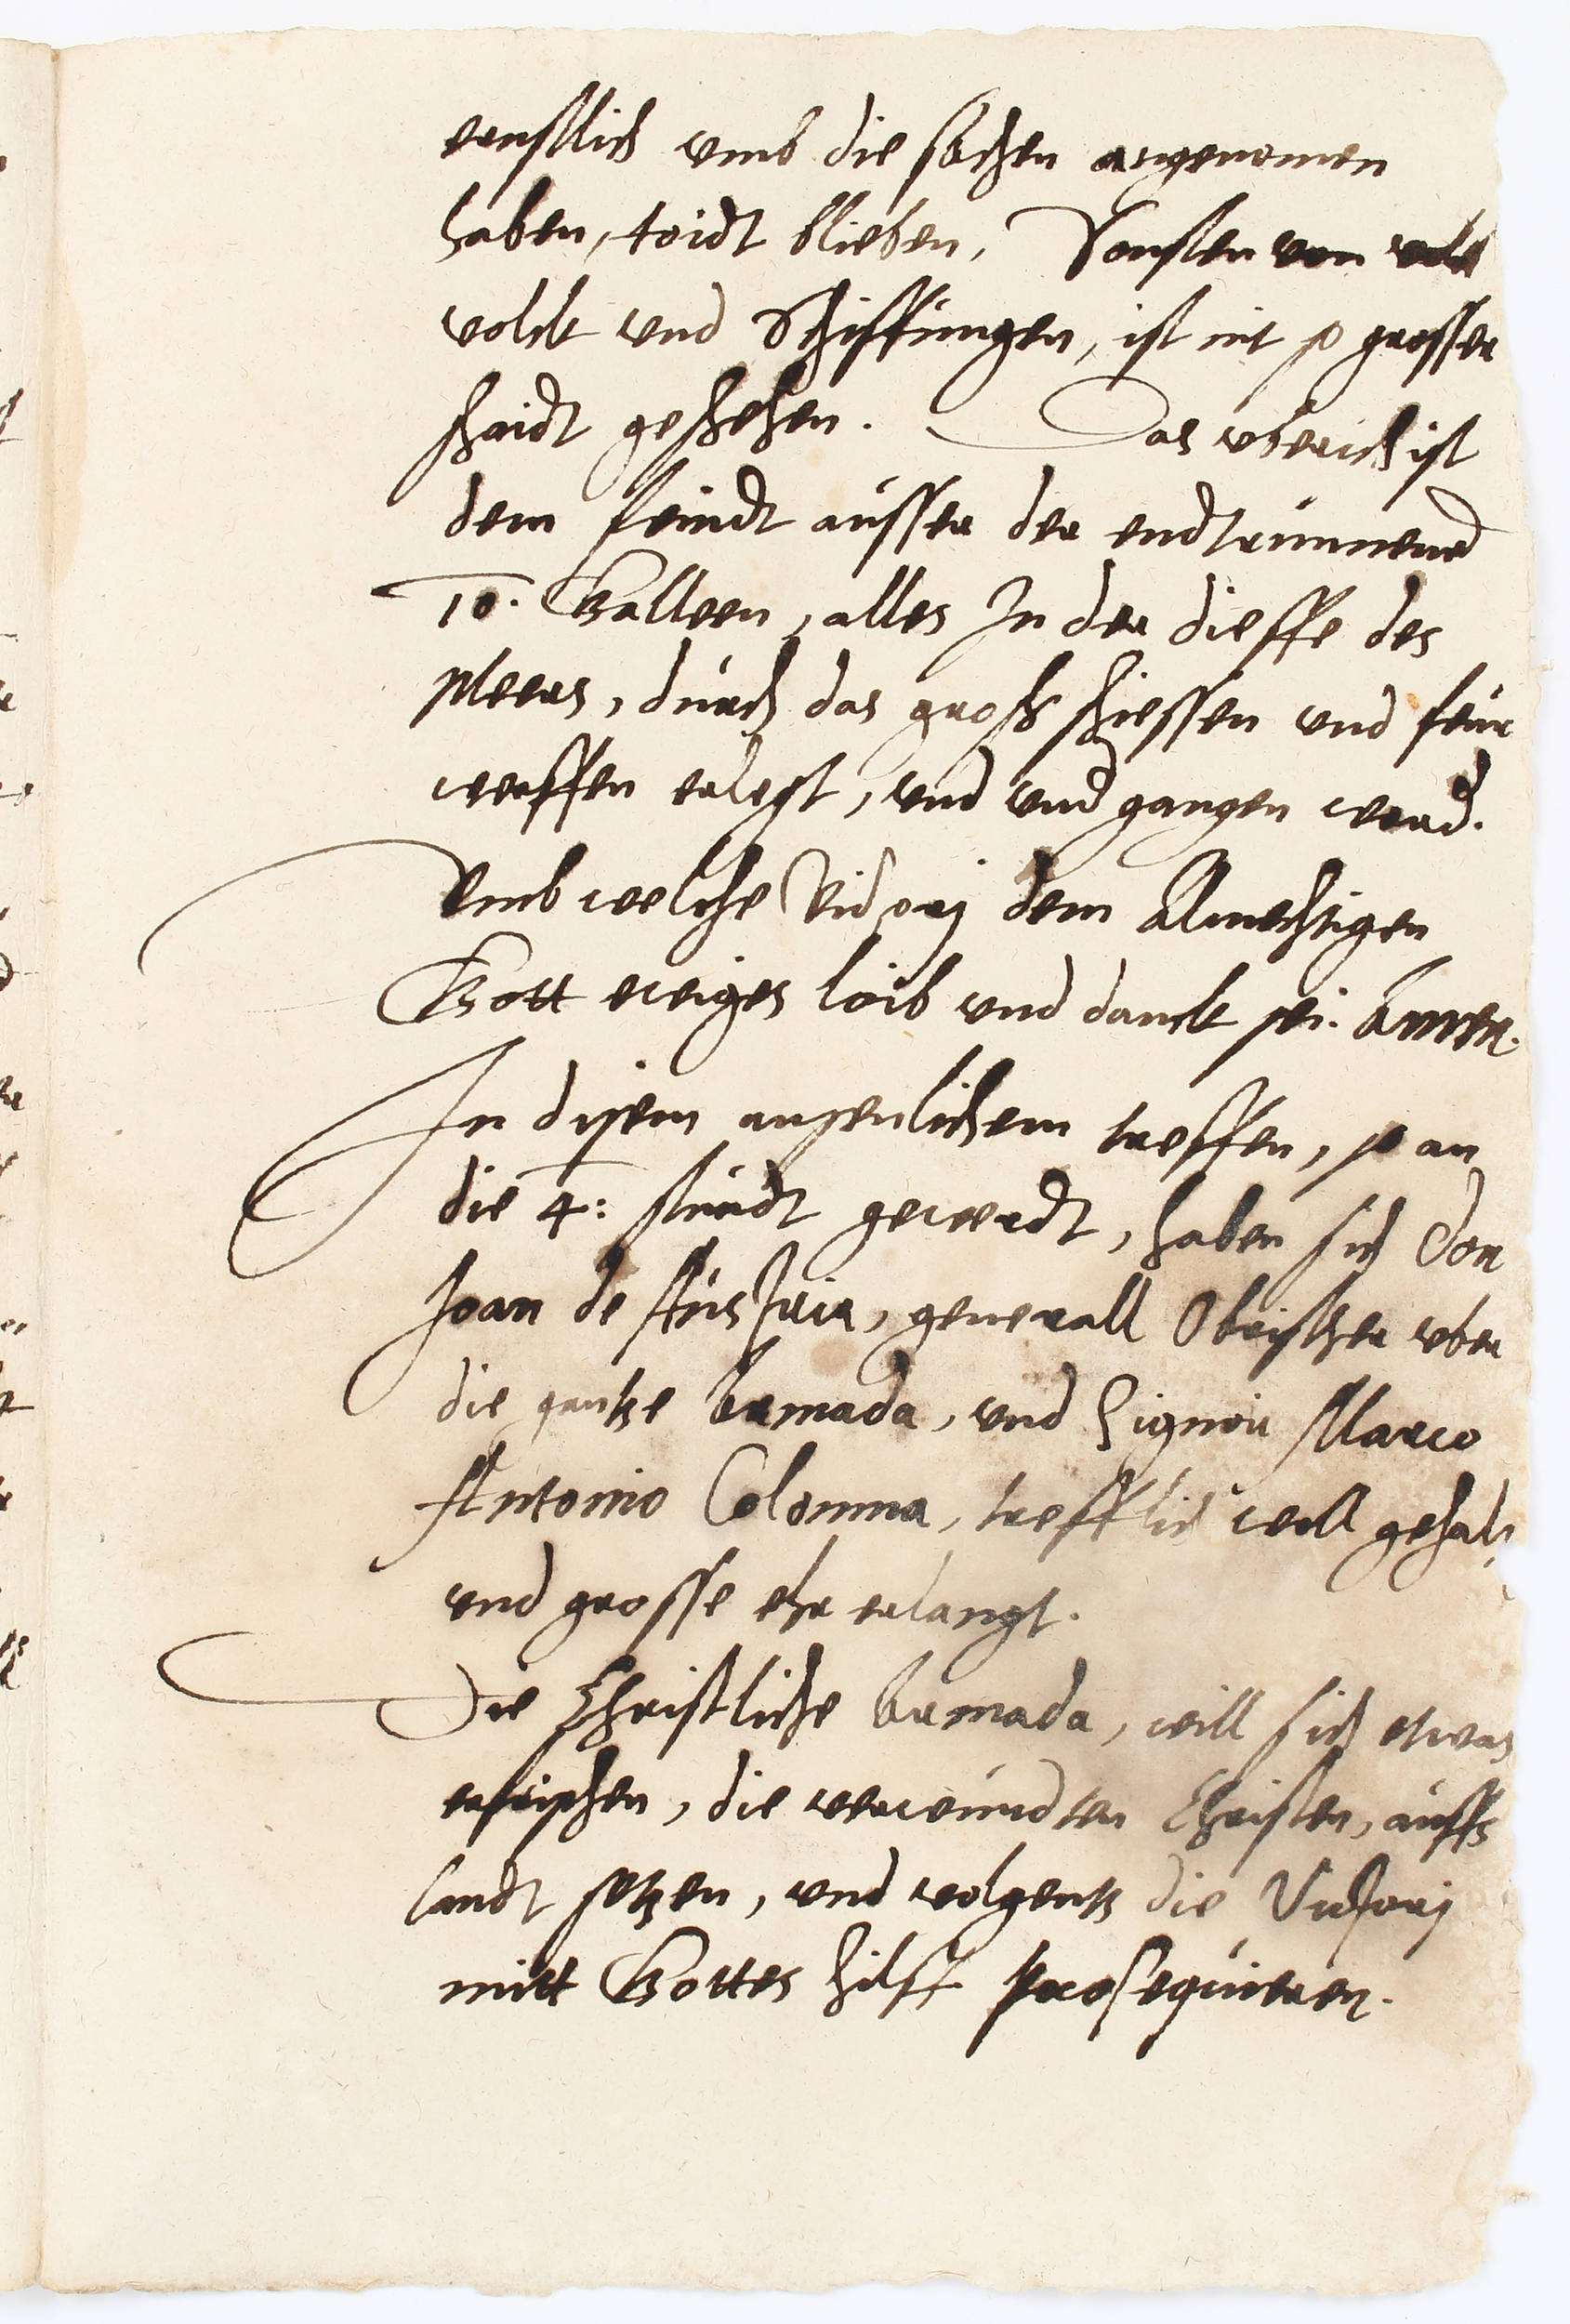 ernstlich umb die sachen angenomen
haben, toidt blieben, Sonsten von
volck und Schiffungen, ist nit so grosser
schaidt geschehen. Das uberich ist
dem feindt ausser der endtrunnend
10. Galleen, alles In der dieffe des
Meers, durch das gross schiessen und feur
werffen erlegt, und und gangen word.
Umb welche Victorj dem Almechtigen
Gott ewiges loib und danck sei. Amen.
In disem ansenlichem treffen, so an
die 4: stundt gewerdt, haben sich Don
Joan de Austria, generall Obrister uber
die gantze Armada, und Signor Marco
Antonio Colonna, trefflich woll gehalt,
und grosse ehr erlangt.
Die Christliche Armada, will sich etwas
erfrischen, die verwundten Christen, auffs
landt setzen, und volgents die Victorj
mitt Gottes hilff prosequieren.